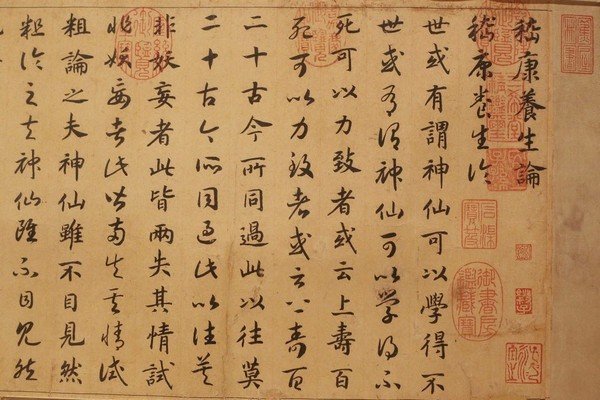 嵇康養生論
嵇康養生論
世或有謂神仙可以學得不
世或有謂神仙可以學得不
死可以力致者或云上壽百
死可以力致者或云上壽百
二十古今所同過此以往莫
二十古今所同過此以往莫
非妖妄者此皆兩失其情試
非妖妄者此皆兩失其情試
粗論之夫神仙雖不目見然
粗論之夫神仙雖不目見然
石渠寶笈
御書房鑑藏寶